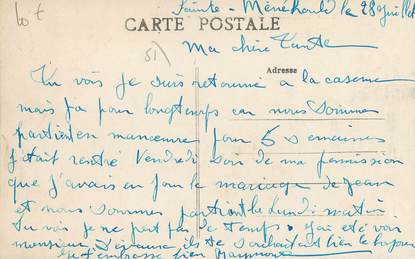 10 €
Sainte-Ménéhould le 28 juillet
CARTE POSTALE
51)
Ma chère Tante
Adresse
Tu vois je suis retourné a la caserne
mais pas pour longtemps car nous somme
parti en manœuvre pour 5 semaines
j'était rentré Vendredi soir de ma permission
que j'avais eu pour le mariage de Jean
et nous sommes parti le Lundi matin
Tu vois je ne pert pas de temps j'ai été voir
monsieur ils te souhaitent bien le bonjour
t'embrasse bien Raymond